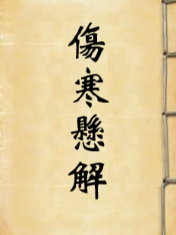 傷寒懸解